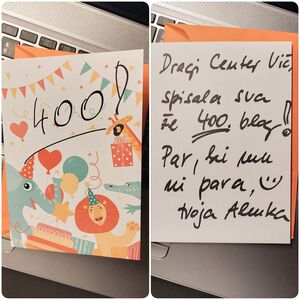 400!
Dragi Center Vič,
spisala sva
že 400. blog!
Par, ki mu
ni para, ☺
tvoja Alenka